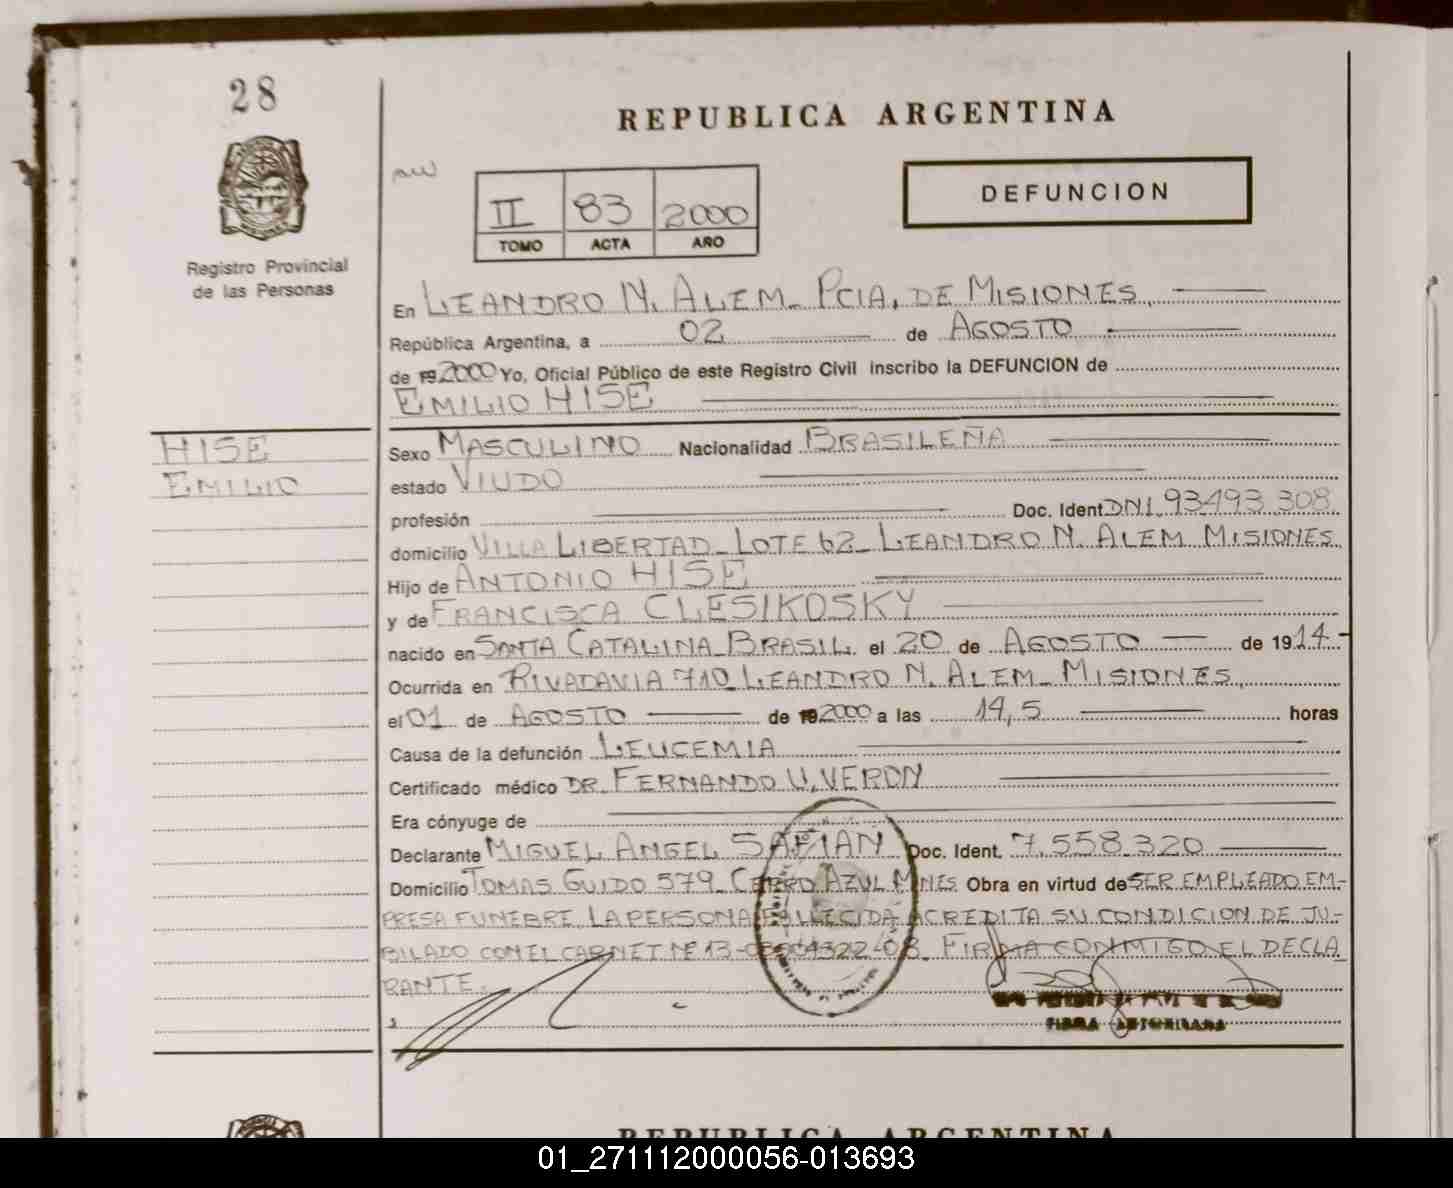 28
REPUBLICA ARGENTINA
DEFUNCION
II 83 2000
TOMO ACTA AÑO
Registro Provincial
de las Personas
En LEANDRO N. ALEM - PCIA. DE MISIONES.
República Argentina, a 02 de AGOSTO
de 192000 Yo, Oficial Público de este Registro Civil inscribo la DEFUNCION de
EMILIO HISE
HISE
EMILIO
Sexo MASCULINO Nacionalidad BRASILEÑA
estado VIUDO
profesión Doc. Ident DNI. 93493.308
domicilio VILLA LIBERTAD - LOTE 62 - LEANDRO N. ALEM MISIONES
Hijo de ANTONIO HISE
y de FRANCISCA CLESIKOSKY
nacido en SANTA CATALINA - BRASIL. el 20 de AGOSTO de 1914.-
Ocurrida en RIVADAVIA 710 - LEANDRO N. ALEM - MISIONES.
el 01 de AGOSTO de 192000 a las 14,5 horas
Causa de la defunción LEUCEMIA
Certificado médico DR. FERNANDO U. VERON
Era cónyuge de
Declarante MIGUEL ANGEL SAFIAN Doc. Ident. 7.558.320
Domicilio TOMAS GUIDO 579 - CERRO AZUL MNES. Obra en virtud de SER EMPLEADO EM-
PRESA FUNEBRE. LA PERSONA FALLECIDA ACREDITA SU CONDICION DE JU-
BILADO CON EL CARNET Nº 13- -08. FIRMA CONMIGO EL DECLA
RANTE.
FIRMA AUTORIZADA
REPUBLICA ARGENTINA
01_271112000056-013693